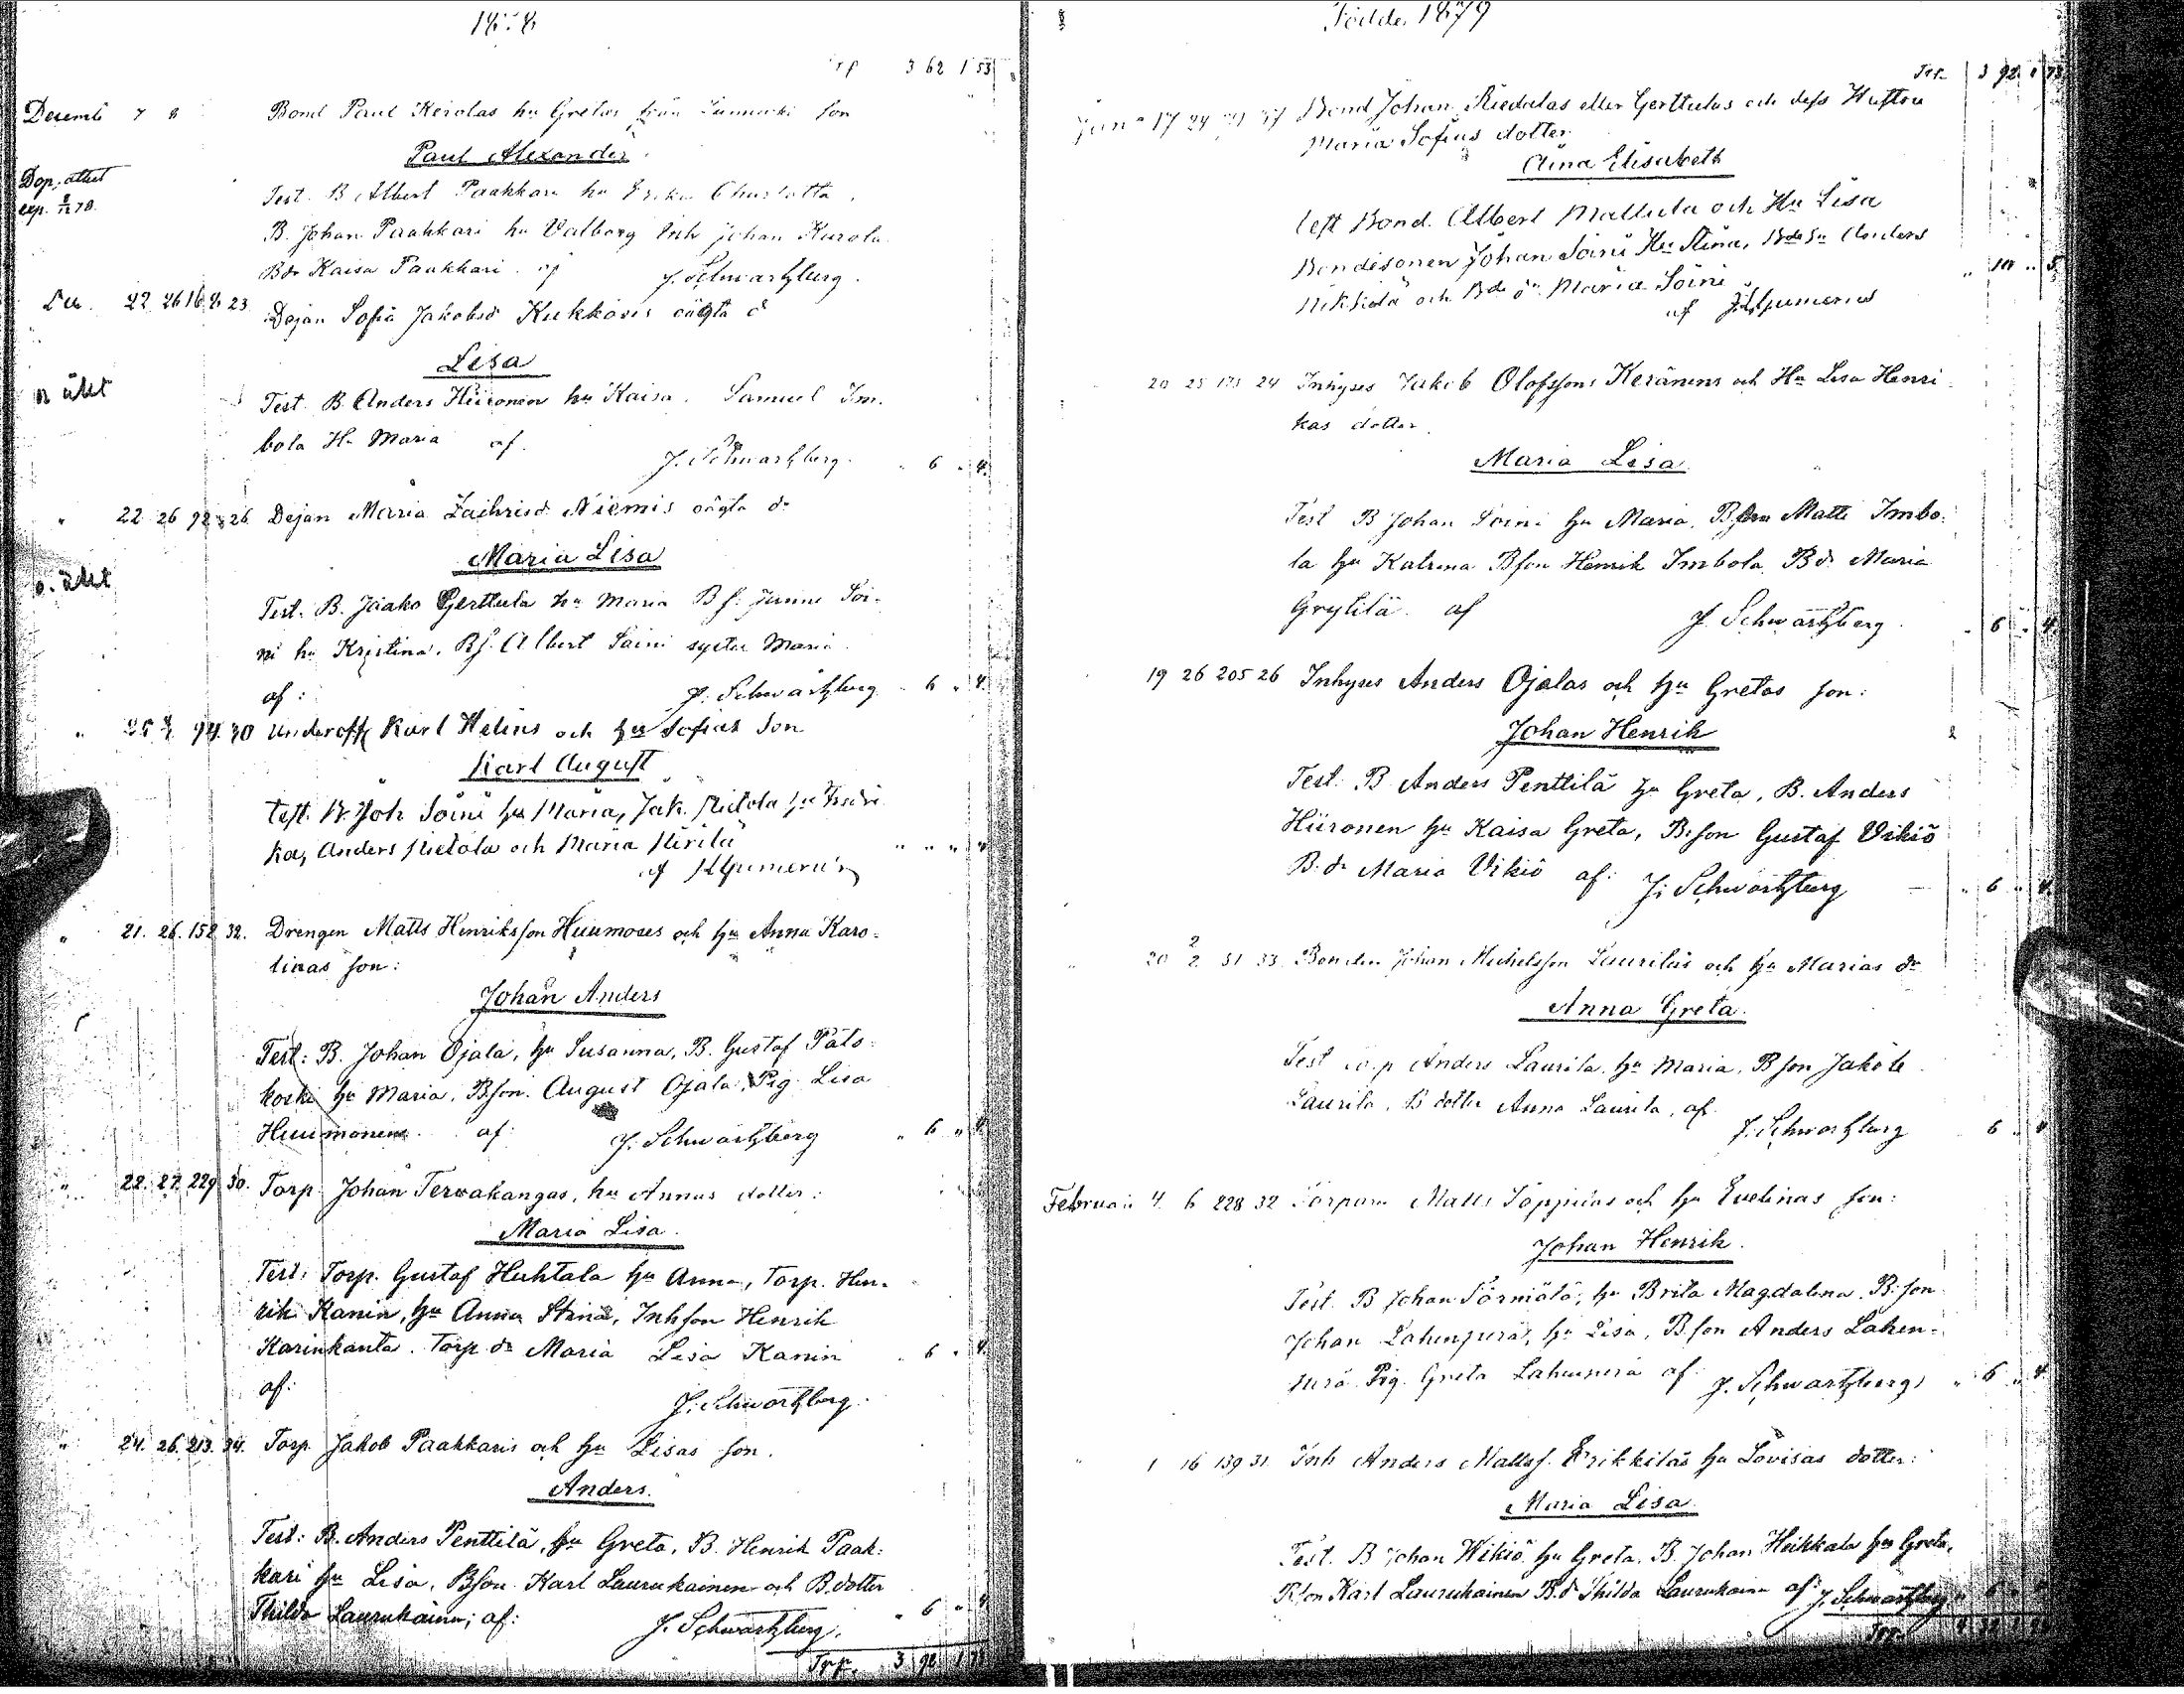 1878
Trp 3 62 1 53
Decemb 7 8 Bond Paul Kerolas hu Gretas från son
Paul Alexander
Dop. attest
exp. 78.
Test. B Albert Paakkari hu Charlotta,
B. Johan Paakkari hu Valborg Inh Johan Kurola
Bdr Kaisa Paakkari af J. Schwartzberg.
22 26 23 Dejan Sofia Jakobsd Kukkosis oägta d
Lisa
o äkt
Test. B. Anders Hiironen hu Kaisa. Samuel Im-
bola Hu Maria af.
J. Schwartzberg. " 6 " 4.
" 22 26 92 26 Dejan Maria Zachrisd. Niemis oägta dr
Maria Lisa
o. äkt
Test. B. Jaako Gerttula hu Maria Bf. Junne Soi-
ni hu Kristina. Bf. Albert Soini syster Maria
af: J. Schwartzberg " 6 " 4.
" 94 30 Underoff Karl Helins och hu Sofias Son
Karl August
Test. B. Joh Soini hu Maria, Jak. Rietola hu Fredri
ka, Anders Rietola och Maria " " " "
af
" 21. 26. 152 32. Drengen Matts Henriksson Huumoses och hu Anna Karo-
linas son:
Johan Anders
Test: B. Johan Ojala, hu Susanna, B. Gustaf Palo-
koski hu Maria, B.son. August Ojala, Pig. Lisa
Huumonen. af: J. Schwartzberg " 6 " 4.
" 22. 27. 229 30. Torp. Johan Terwakangas, hu Annas dotter:
Maria Lisa.
Test: Torp. Gustaf Huhtala hu Anna, Torp. Hen-
rik Kanin, hu Anna Stina, Inhson Henrik
Karinkanta. Torp. dr Maria Lisa Kanin " 6 " 4.
af:
J. Schwartzberg.
" 24. 26. 213. 34. Torp Jakob Paakkaris och hu Lisas son.
Anders.
Test: B. Anders Penttilä, hu Greta, B. Henrik Paak-
kari hu Lisa, Bson Karl Laurukainen och B.dotter
Thilda Laurukainen; af: J. Schwartzberg. " 6 " 4
Trp. 3 92 1 73
Födde 1879
Trp. 3 92 1 73
17 24 Bond Johan Riedulas eller Gerttulas och dess Hustru
Maria Sofias dotter
Aina Elisabeth
Test Bond. Albert Mattula och Hu Lisa
Bondesonen Johan Soini Hu Stina, Anders
och Maria Soini " 10 " 5
af
20 25 173 24 Inhyses Jakob Olofssons Keränens och Hu Lisa Henri-
kas dotter.
Maria Lisa
Test B Johan Soini hu Maria. Bson Matti Imbo-
la hu Katrina Bson Henrik Imbola Bdr Maria
Grytilä af J Schwartzberg " 6 " 4.
19 26 205 26 Inhyses Anders Ojalas och hu Gretas son:
Johan Henrik
Test: B Anders Penttilä hu Greta, B. Anders
Hiironen hu Kaisa Greta, B.son Gustaf Vikiö
B.dr Maria Vikiö af: J: Schwartzberg " 6 " 4.
" 20 2/2 51 33 Bonden Johan Michelsson Laurilas och hu Marias dr
Anna Greta.
Test Torp Anders Laurila hu Maria, Bson Jakob
Laurila, B dotter Anna Laurila, af.
J. Schwartzberg 6 " 4
Februari 4 6 228 32 Torpare Matts Soppelas och hu Evelinas son:
Johan Henrik.
Test. B Johan Törmälä, hu Brita Magdalena. B.son
Johan Lahenperä, hu Lisa, B.son Anders Lahen-
perä Pig. Greta Lahenperä af: J. Schwartzberg " 6 " 4.
" 1 16 139 31 Inh Anders Mattsf. Erikkiläs hu Lovisas dotter:
Maria Lisa.
Test. B Johan Wikiö hu Greta. B. Johan Heikkala hu Greta,
Bson Karl Laurukainen B.d Thilda Laurukainen af: J. Schwartzberg " 6 " 4
Trp.